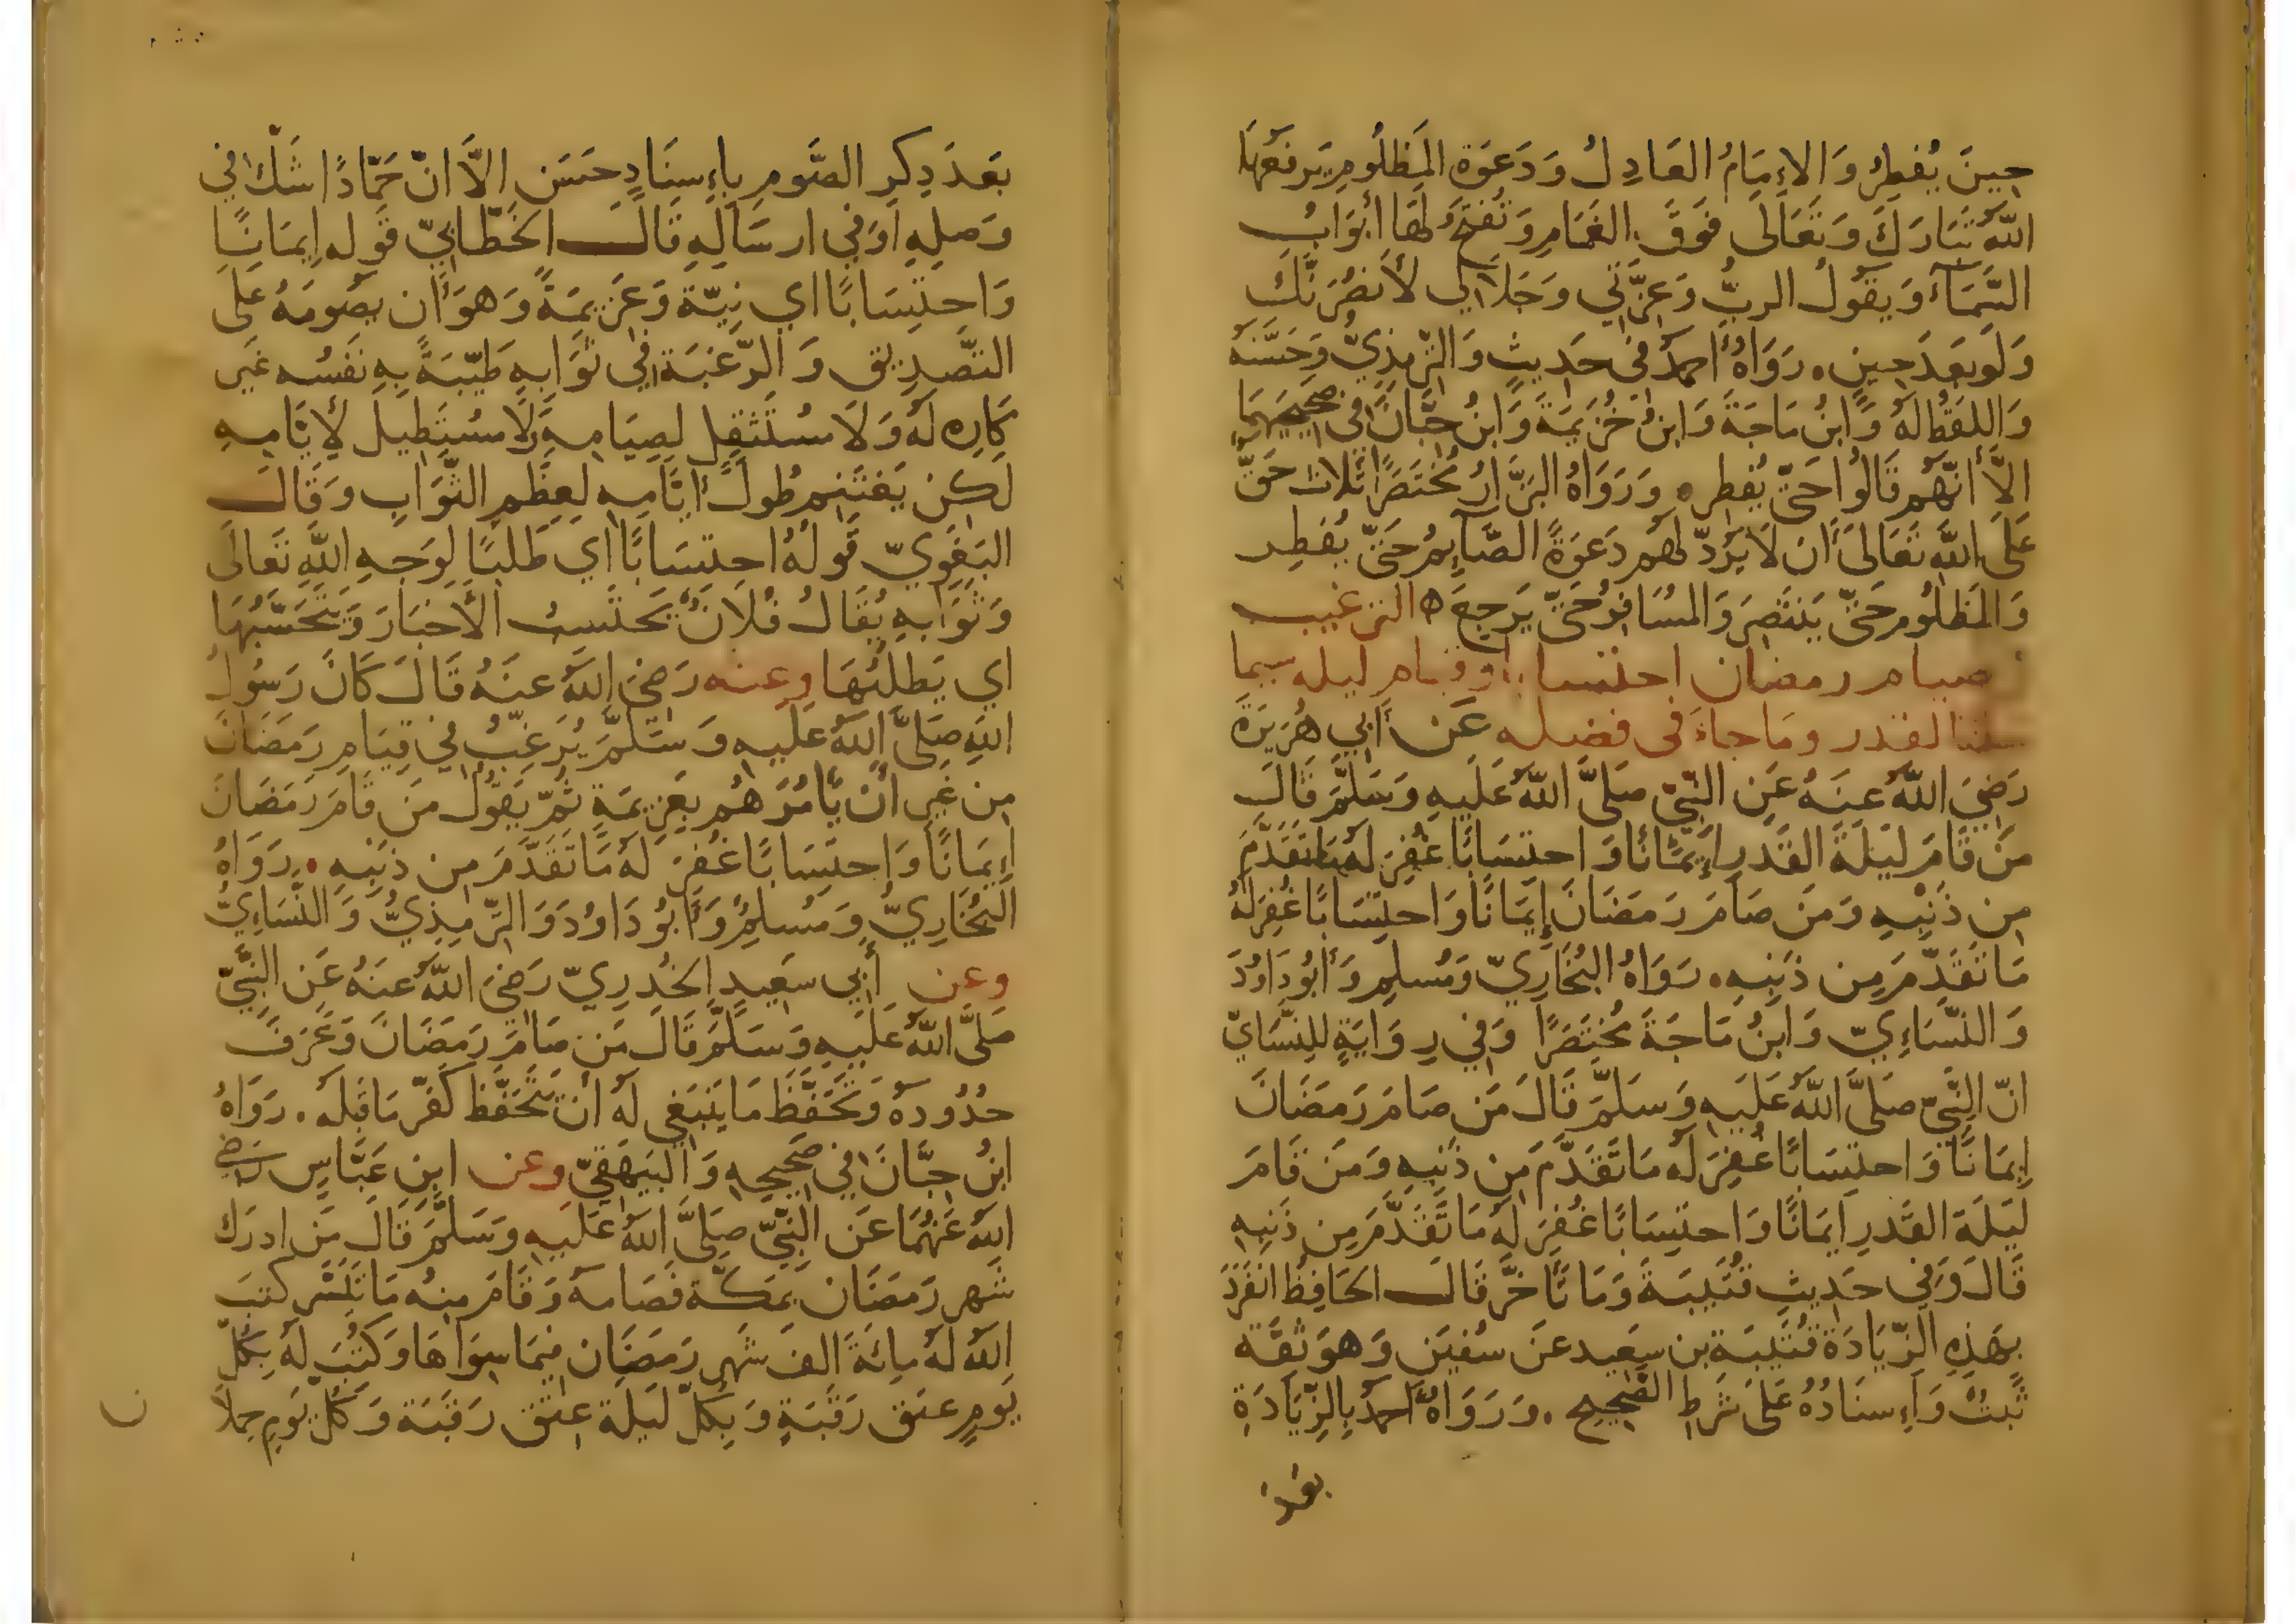 حِينَ يُفطِرُ وَالاِمَامُ العَادِلُ وَدَعوَة المَظلُومِ يَرفَعُهَا
اللّه تَبَارَكَ وَتَعَالَى فَوقَ الغَمَامِ وَتُفتَحُ لَهَا أبوَابُ
السَّمَآءِ وَيَقُولُ الربُّ وَعِزَّتي وَجَلَالِي لأَنصُرَنَّكَ
وَلَو بَعدَ حِينٍ . رَوَاهُ أحمَدُ في حَديثٍ وَالتّرمِذِيُّ وَحَسَّنَهُ
وَاللفظُ لَهُ وَابنُ مَاجَةَ وَابنُ خُزَيمَةَ وَابنُ حِبَّانَ في صَحِيحَيهِمَا
الَّا أنّهُم قَالُوا حَتّى يُفطِر ه وَرَوَاهُ البَزَّارُ مُختَصَرًا ثَلاث حَقّ
عَلَى اللّه تَعَالَى أَن لَا يَرُدّ لَهُم دَعوَةً الصَّآيِمُ حَتَّى يُفطِر
وَالمَظلُوم حَتّى يَنتَصِرَ وَالمُسَافِرُ حَتّى يَرجِعَ ه الترغيب
صيام رمضان احتسابا وقيام ليله سيما
ليلة القدر ومَا جاءَ في فضله عَن أَبي هُرَيرَةَ
رَضِيَ اللّهُ عَنهُ عَنِ النَّبِيّ صَلَّى اللّهُ عَلَيهِ وَسَلَّمَ قَالَ
مَن قَامَ لَيلَةَ القَدرِ إيمَانًا وَاحتِسَابًا غُفِرَ لَهُ مَا تَقَدَّمَ
مِن ذَنبِهِ وَمَن صَامَ رَمَضَانَ إِيمَانًا وَاحتِسَابًا غُفِرَ لَهُ
مَا تَقَدَّمَ مِن ذَنبِهِ . رَوَاهُ البُخَارِيّ وَمُسلِم وَأبُو دَاوُدَ
وَالنّسَاءِيّ وَابنُ مَاجَةَ مُختَصَرًا وَفي رِوَايَةٍ لِلنَّسَايّ
انّ النَّبِيّ صَلَّى اللّهُ عَلَيهِ وَسَلَّمَ قَالَ مَن صَامَ رَمَضَانَ
إيمَانًا وَاحتِسَابًا غُفِرَ لَهُ مَا تَقَدَّمَ مِن ذَنبِهِ وَمَن قَامَ
لَيلَةَ القَدرِ ايمَانًا وَاحتِسَابًا غُفِرَ لَهُ مَا تَقَدَّمَ مِن ذَنبِهِ
قَالَ وَفِي حَدِيثِ قُتَيبَةَ وَمَا تَأخَّرَ قَالَ الحَافِظُ انفَرَدَ
بِهَذِهِ الزّيَادَة قُتَيبَة بن سَعِيد عَن سُفيَن وَهوَ ثقَة
ثَبتٌ وَإِسنَادُهُ عَلَى شَرطِ الصَّحِيحِ . وَرَوَاهُ أحمَدُ بِالزّيَادَةِ
بعد
بَعدَ ذِكرِ الصَّومِ بِإِسنَادٍ حَسَن اِلَّا انّ حَمَّادًا شَكَّ في
وَصلِهِ أوَفي ارسَالِهِ قَالَ الخَطَّابيّ قَوله اِيمَانًا
وَاحتِسَابًا اي نِيّة وَعَزِيمَةً وَهوَ أَن يصُومَهُ عَلَى
التَّصدِيق وَالرّغبَة في ثَوَابِهِ طَيّبَةً بِهِ نَفسُه غَير
كَارِه لَهُ وَلَا مُستَثقِل لِصِيَامِهِ وَلَا مُستَطِيل لِأَيَّامِهِ
لَكِن يَغتَنِم طُولَ أيَّامِهِ لِعِظَمِ الثّوَابِ وَقَالَ
البَغَوِيّ قَولُهُ احتِسَابًا أي طَلَبًا لِوَجهِ اللَّهِ تَعَالَى
وَثَوَابِهِ يُقَالُ فُلَانٌ يَحتَسِبُ الأَخبَارَ وَيَتَحَسَّبُهَا
اي يَطلُبُهَا وعنه رَضِيَ اللّهُ عنهُ قَالَ كَانَ رَسُولُ
اللّهِ صَلَّى اللّهُ عَلَيهِ وَسَلَّمَ يُرَغِّبُ في قِيَامِ رَمَضَانَ
مِن غَيرِ أن يَأمُرَهُم بِعَزِيمَةٍ ثُمّ يَقُولُ مَن قَامَ رَمَضَانَ
إيمَانًا وَاحتِسَابًا غُفِرَ لَهُ مَا تَقَدَّمَ مِن ذَنبِهِ . رَوَاهُ
البُخَارِيُّ وَمُسلِمٌ وَأبُو دَاوُدَ وَالتّرمِذِيُّ وَالنَّسَاءِيُّ
وعن أَبي سَعِيدٍ الخُدرِيّ رَضِيَ اللّهُ عَنهُ عَن النَّبِيّ
صَلَّى اللّهُ عَلَيهِ وَسَلَّمَ قَالَ مَن صَامَ رَمَضَانَ وَعَرَفَ
حُدُودهُ وَتَحَفَّظَ مَا يَنبَغي لَهُ أن يَتَحَفَّظ كَفّرَ مَا قَبلَه . رَوَاهُ
ابنُ حِبَّانَ في صَحِيحِهِ وَالبَيهَقِيّ وعن ابنِ عَبَّاسٍ رَضِيَ
اللّهُ عَنهُمَا عَن النَّبِيّ صَلَّى اللّهُ عَلَيهِ وَسَلَّمَ قَالَ مَن ادرَكَ
شَهر رَمَضَان بمَكّة فَصَامهُ وَقَامَ مِنهُ مَا تيَسَّر كتبَ
اللّهُ لَهُ مِائَةَ الفَ شَهرِ رَمَضَان فِيمَا سِوَاهَا وَكَتَبَ لَهُ بِكُلّ
يَومٍ عتق رَقَبَةٍ وَبِكُلّ لَيلَة عِتق رَقَبَة وَكُلّ يَومٍ حملَا